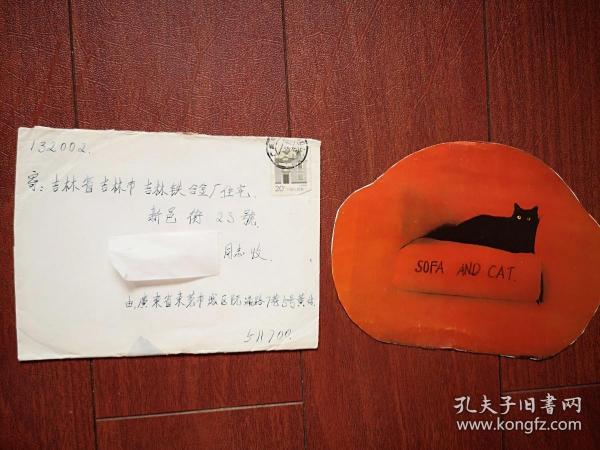 132002.
寄:吉林省吉林市吉林铁合金厂住宅.
新邑街 23號
同志收.
由.廣東省東莞市城区阮涌路7巷8号黄
511700.
20分
SOFA AND CAT.
孔夫子旧书网
www.kongfz.com